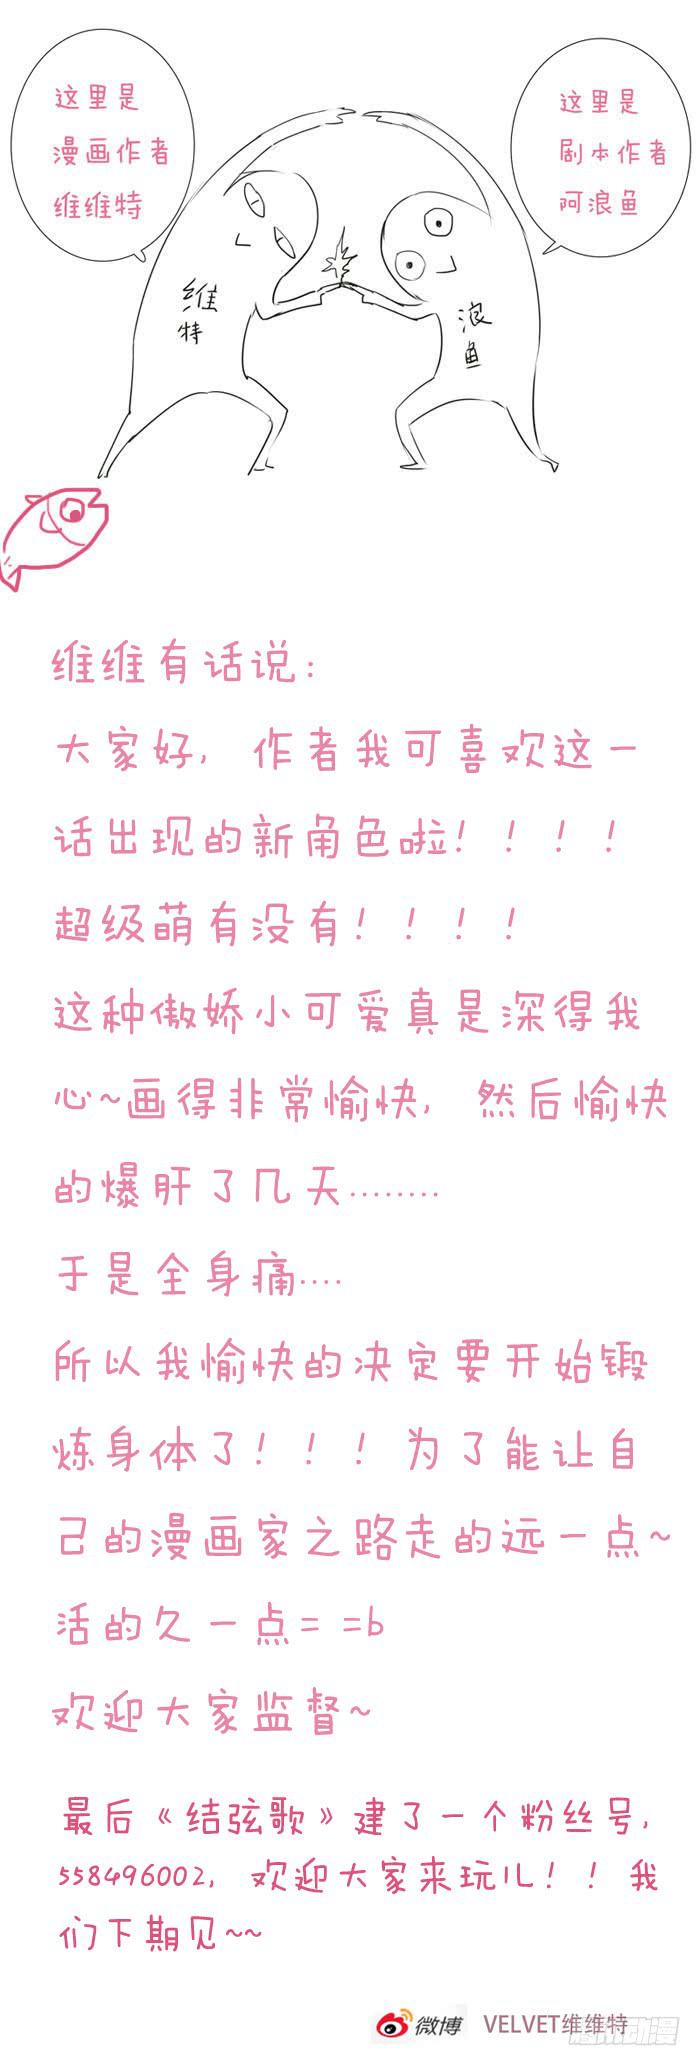 这里是
漫画作者
维维特
这里是
剧本作者
阿浪鱼
维
特
浪
鱼
维维有话说：
大家好，作者我可喜欢这一
话出现的新角色啦！！！！
超级萌有没有！！！！
这种傲娇小可爱真是深得我
心~画得非常愉快，然后愉快
的爆肝了几天........
于是全身痛....
所以我愉快的决定要开始锻
炼身体了！！！为了能让自
己的漫画家之路走的远一点~
活的久一点= =b
欢迎大家监督~
最后《结弦歌》建了一个粉丝号，
558496002，欢迎大家来玩儿！！我
们下期见~~
微博 VELVET维维特